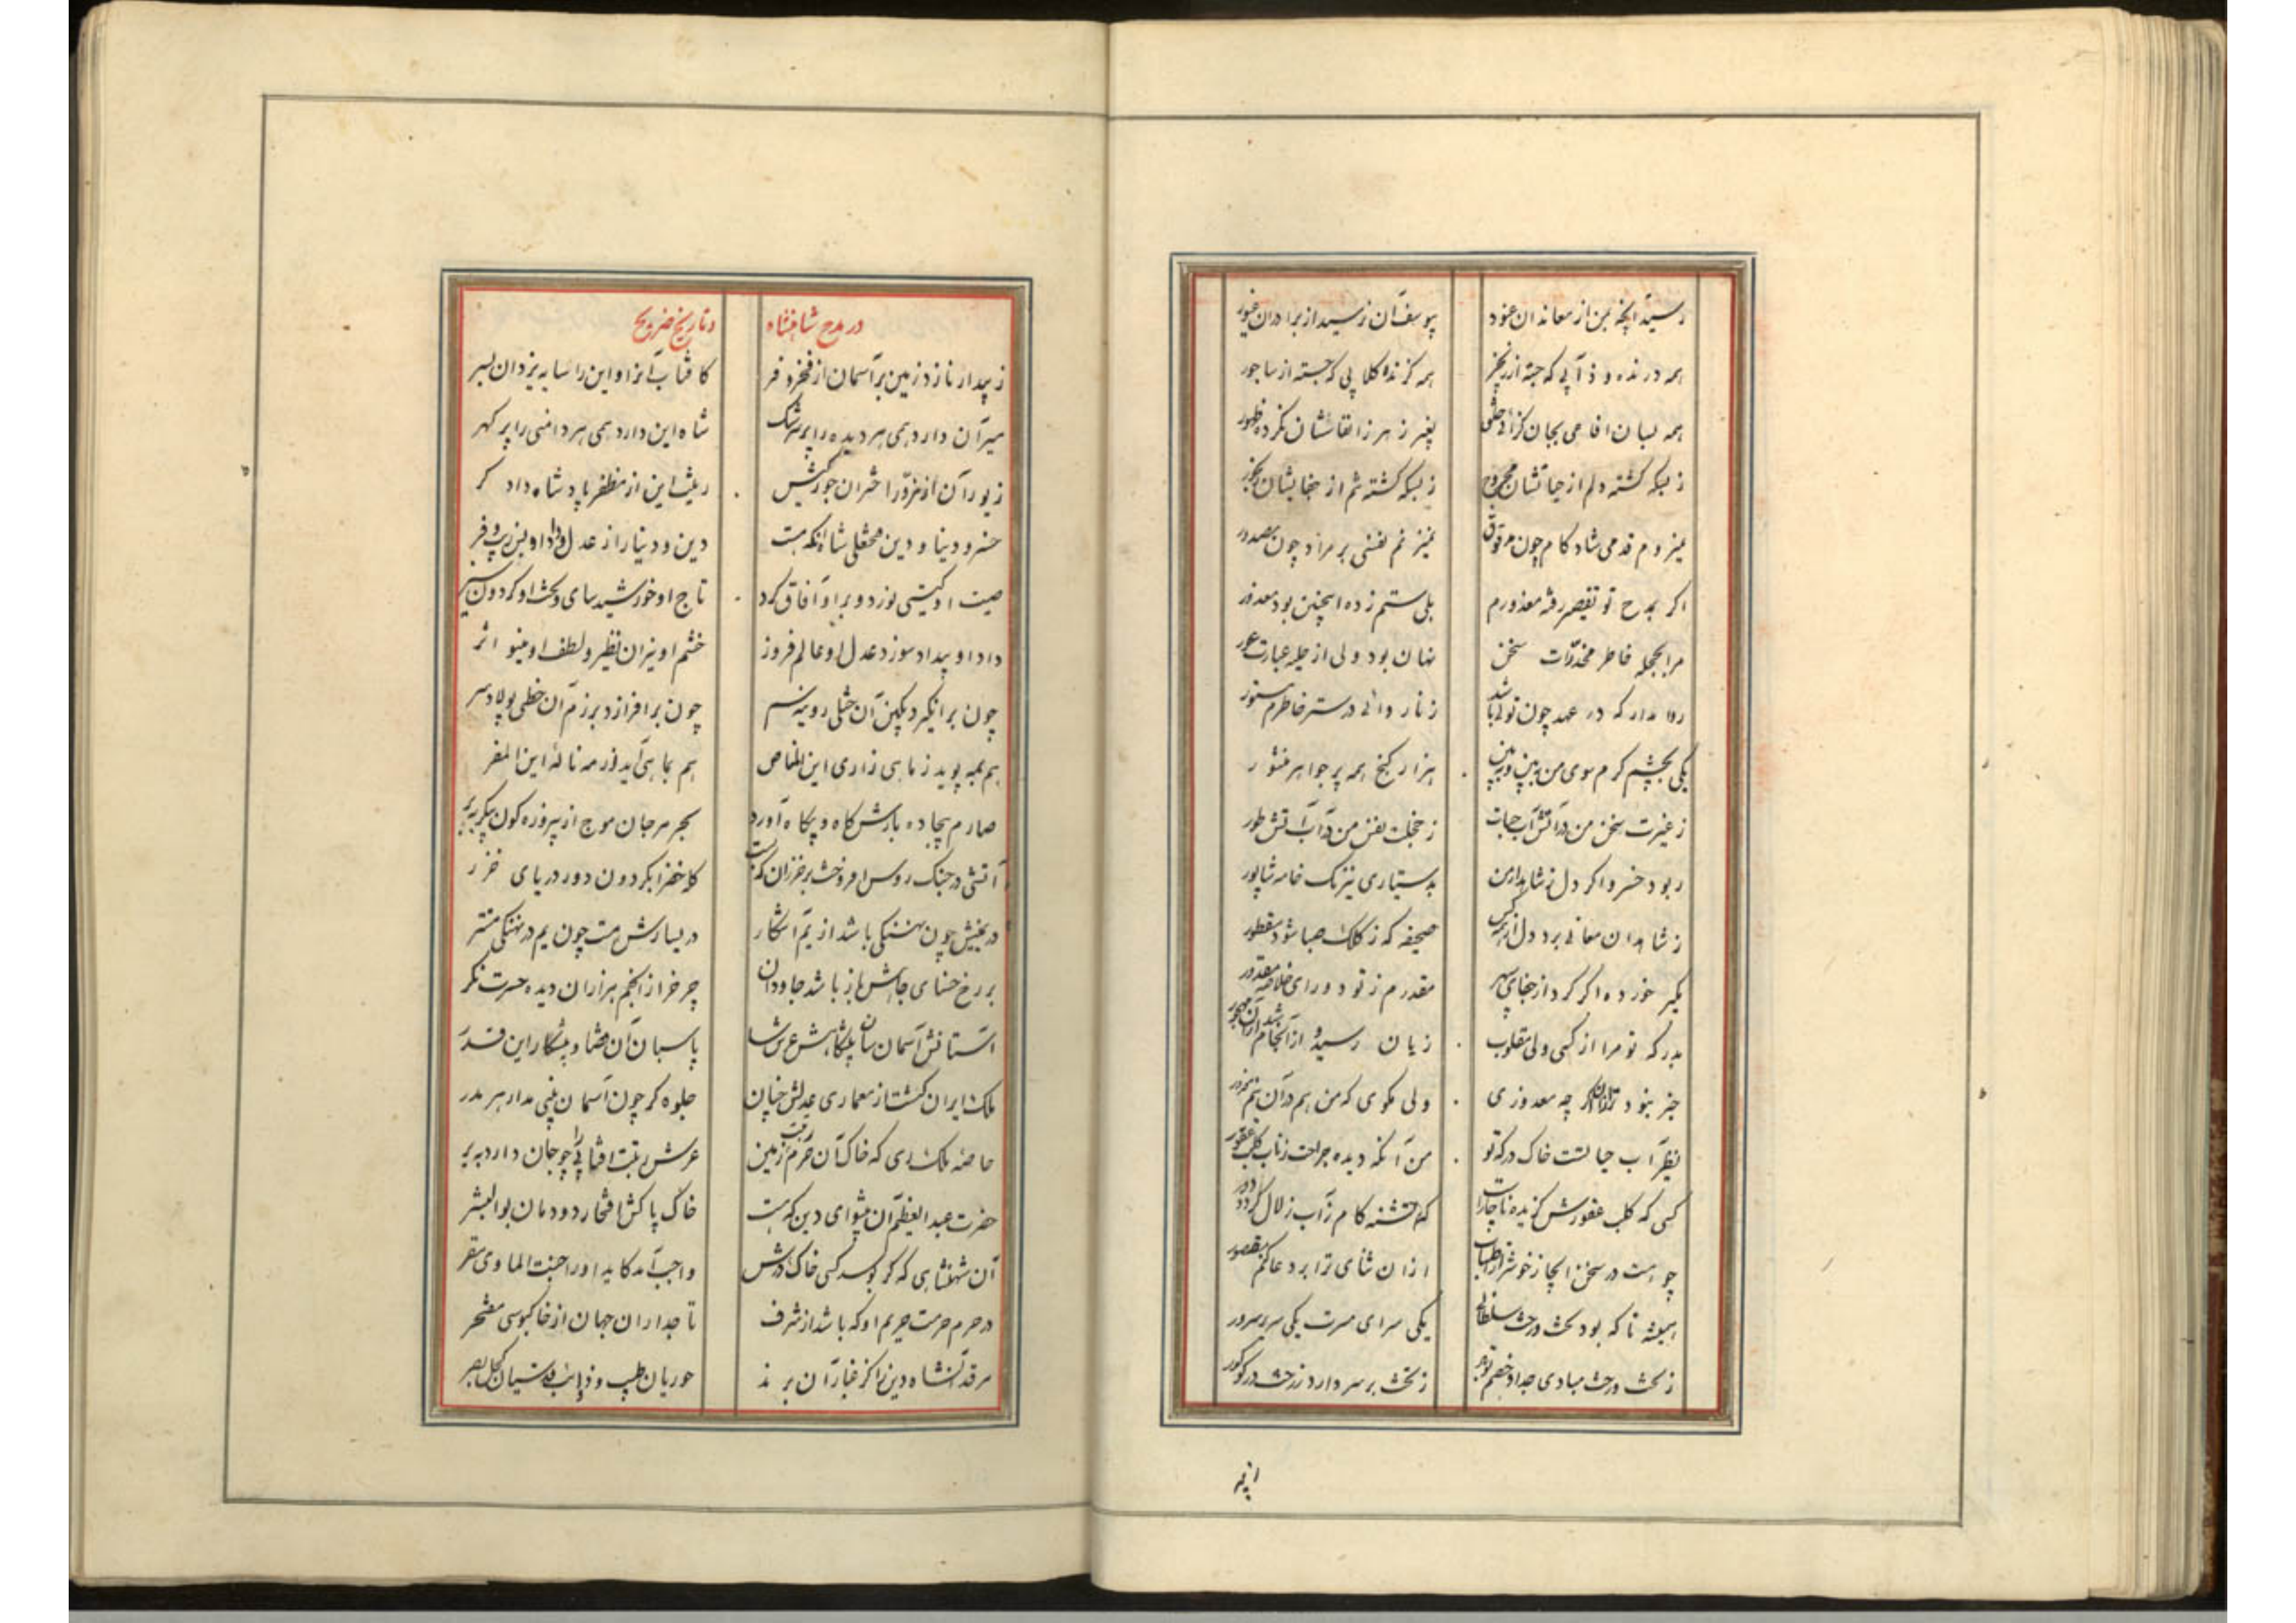 رسید آنچه بمن از معاندان عنود
بیوسف آن نرسید از برادران غیور
همه درنده و ذآبی که جسته از زنجیر
همه گزنده کلابی که جسته از ساجور
همه بسان افاعی بجان گزائی خلق
بغیر زهر ز انفاسشان نکرده ظهور
ز بسکه گشته دلم از جفایشان
نمیزنم نفسی بر مراد چون مصدور
اگر بمدح تو تقصیر رفته معذورم
بلی ستم زده اینچنین بود معذور
مرا بحجله خاطر مخدرات سخن
نهان بود ولی از حلیه عبارت عور
روا مدار که در عهد چون توئی باشد
ز ناروائی در ستر خاطرم مستور
یکی بچشم کرم سوی من ببین و ببین
هزار گنج همه پر جواهر منثور
ز غیرت سخن من در آتش آب حیات
ز خجلت نفس من در آب آتش طور
ربود خسرو اگر دل ز شاهد ارمن
بدستیاری نیرنگ خامه شاپور
ز شاهدان معانی برد دل از هر کس
صحیفه که ز کلک صبا شود مسطور
مگیر خورده اگر کرد از جفای سپهر
بدرکه تو مرا از کسی ولی مقلوب
زیان رسیده و از آنجام
ولی مگوی که من هم در آن نیم مجبور
بظهر آب حیاتست خاک درگه تو
من آنکه دیده جراحت ز ناب کلب عقور
کسی که کلب عقورش گزیده ناچارست
که تشنه کام ز آب زلال گردد دور
چو هست در سخن ایجاز خوشتر از اطناب
از آن ثنای ترا بر دعا کنم مقصور
همیشه تا که بود تخت و رخت سلطانی
یکی سرای مسرت یکی سریر سرور
ز تخت و رخت مبادی جدا و خصم تو هم
ز تخت بر سر دار و ز رخت در گو گور
از پی
در مدح شاهنشاه
و تاریخ ضریح
زیبد ار نازد زمین بر آسمان از فخر و فر
کافتاب آنرا و این را سایه یزدان بسر
میر آن دارد همی هر دیده را پر سرشک
شاه این دارد همی هر دامنی را پر گهر
زیور آن از فر در اختران خور کشیش
زینت این از مظفر پادشاه دادگر
خسرو دنیا و دین فتحعلی شاه آنکه هست
دین و دنیا را از عدل و داد او بس زیب و فر
صیت او گیتی نورد و بر او آفاق گرد
تاج او خورشید سای و تخت او گردون سپر
داد او بیداد سوز و عدل او عالم فروز
خشم او نیران نظیر و لطف او مینو اثر
چون برانگیزد بکین آن ختلی روینه سم
چون برافرازد برزم آن خطی پولاد سر
هم بمه پوید ز ماهی زاری این المناص
هم بماهی آید از مه ناله این المفر
صارم بیجاده بارش گاه و بیگاه آورد
بحر مرجان موج از پیروزه گون پیکر
آتشی در جنگ روس افروخت بر خزران که هست
کاخ خضرا بگردون دود دریای خزر
در یمینش چون نهنگی باشد از یم آشکار
در یسارش هست چون یم در نهنگی مستتر
بر رخ حسنای جاهش باز باشد جاودان
چرخ را از انجم هزاران دیده حسرت نگر
آستانش آسمان سان پیشگاهش عرش سا
پاسبان آن قضا و پیشکار این قدر
ملک ایران گشت از معماری عدلش چنان
جلوه گر چون آسمان بینی مدار هر مدر
خاصه ملک ری که خاک آن حرم
عرش رتبت آفتابی را چو جان دارد ببر
حضرت عبدالعظیم آن پیشوای دین که هست
خاک پاکش افتخار دودمان بوالبشر
آن شهنشاهی که گر بوسد کسی خاک درش
واجب آمد کاید او را جنت الماوی مقر
در حرم حرمت حریم او که باشد از شرف
تاجداران جهان از خاکبوسی مفتخر
مرقد آن شاه دین را کز غبار آن برند
حوریان طیب و ذوایب قدسیان کحل بصر